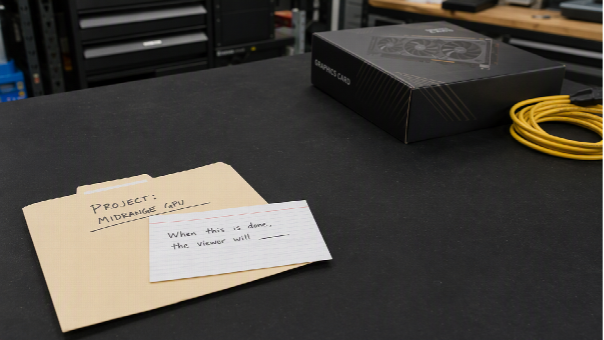 GRAPHICS CARD
PROJECT:
MIDRANGE GPU
When this is done,
the viewer will ____.